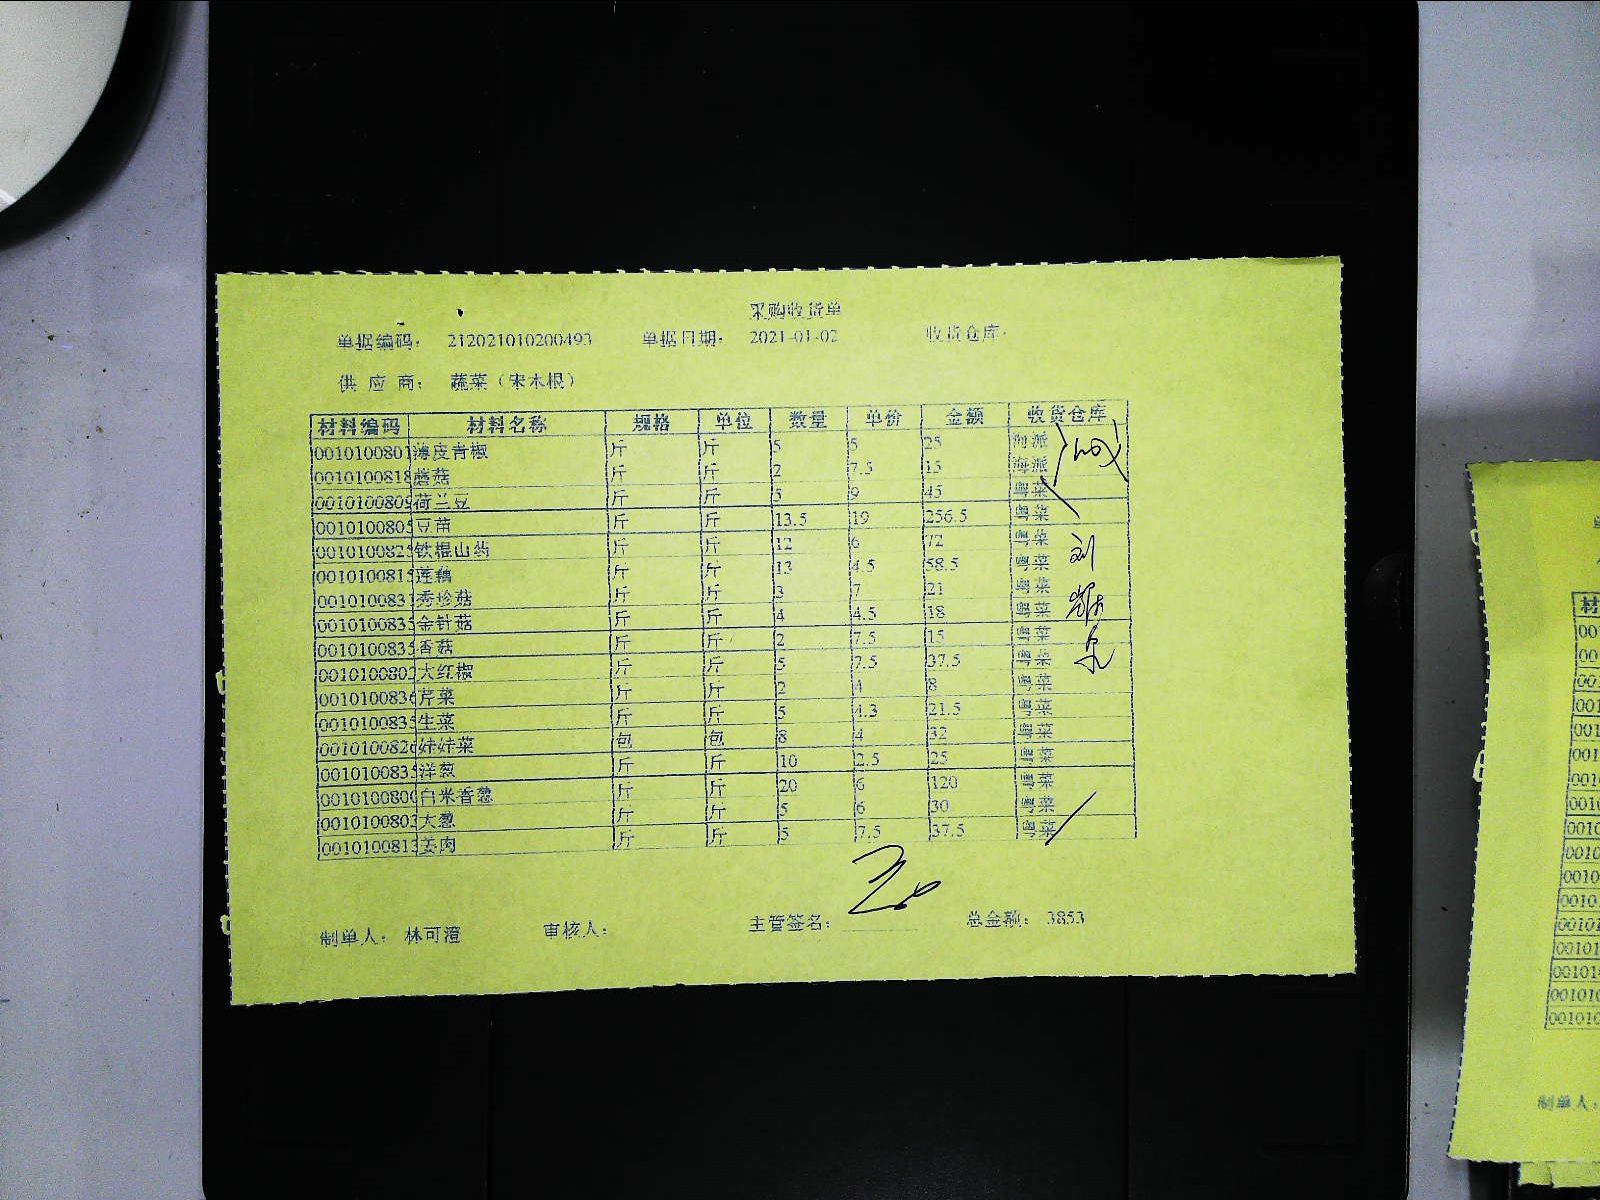 采购收货单
单据编码： 212021010200493 单据日期： 2021-01-02 收货仓库：
供 应 商： 蔬菜（宋木根）
材料编码 材料名称 规格 单位 数量 单价 金额 收货仓库
0010100801 薄皮青椒 斤 斤 5 5 25 海派
0010100818 蘑菇 斤 斤 2 7.5 15 海派
0010100809 荷兰豆 斤 斤 5 9 45 粤菜
0010100805 豆苗 斤 斤 13.5 19 256.5 粤菜
0010100825 铁棍山药 斤 斤 12 6 72 粤菜
0010100815 莲藕 斤 斤 13 4.5 58.5 粤菜
0010100831 秀珍菇 斤 斤 3 7 21 粤菜
0010100835 金针菇 斤 斤 4 4.5 18 粤菜
0010100835 香菇 斤 斤 2 7.5 15 粤菜
0010100802 大红椒 斤 斤 5 7.5 37.5 粤菜
0010100836 芹菜 斤 斤 2 4 8 粤菜
0010100835 生菜 斤 斤 5 4.3 21.5 粤菜
0010100826 娃娃菜 包 包 8 4 32 粤菜
0010100835 洋葱 斤 斤 10 2.5 25 粤菜
0010100800 白米香葱 斤 斤 20 6 120 粤菜
0010100803 大葱 斤 斤 5 6 30 粤菜
0010100813 姜肉 斤 斤 5 7.5 37.5 粤菜
制单人： 林可澄 审核人： 主管签名： 总金额： 3853
制单人：